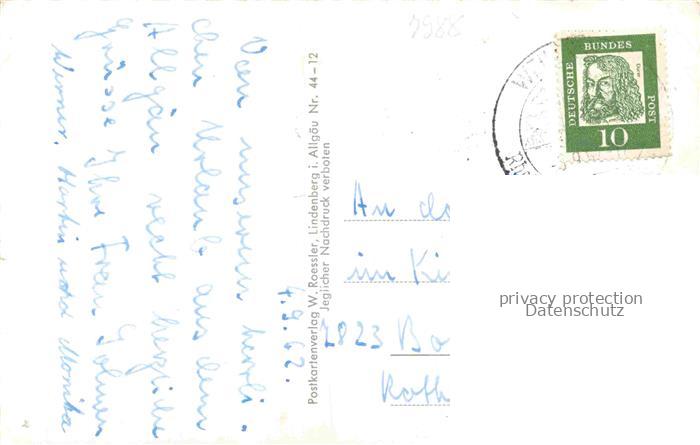 7988
Von unserem herrli-
chen Urlaub aus dem
Allgäu recht herzliche
Grüsse Ihre Frau
Werner, Martin und Monika
4.9.62.
Postkartenverlag W. Roessler, Lindenberg i. Allgäu Nr. 44-12
Jeglicher Nachdruck verboten
DEUTSCHE BUNDES POST
Dürer
10
An
im Ki
Bo
Roth
privacy protection
Datenschutz